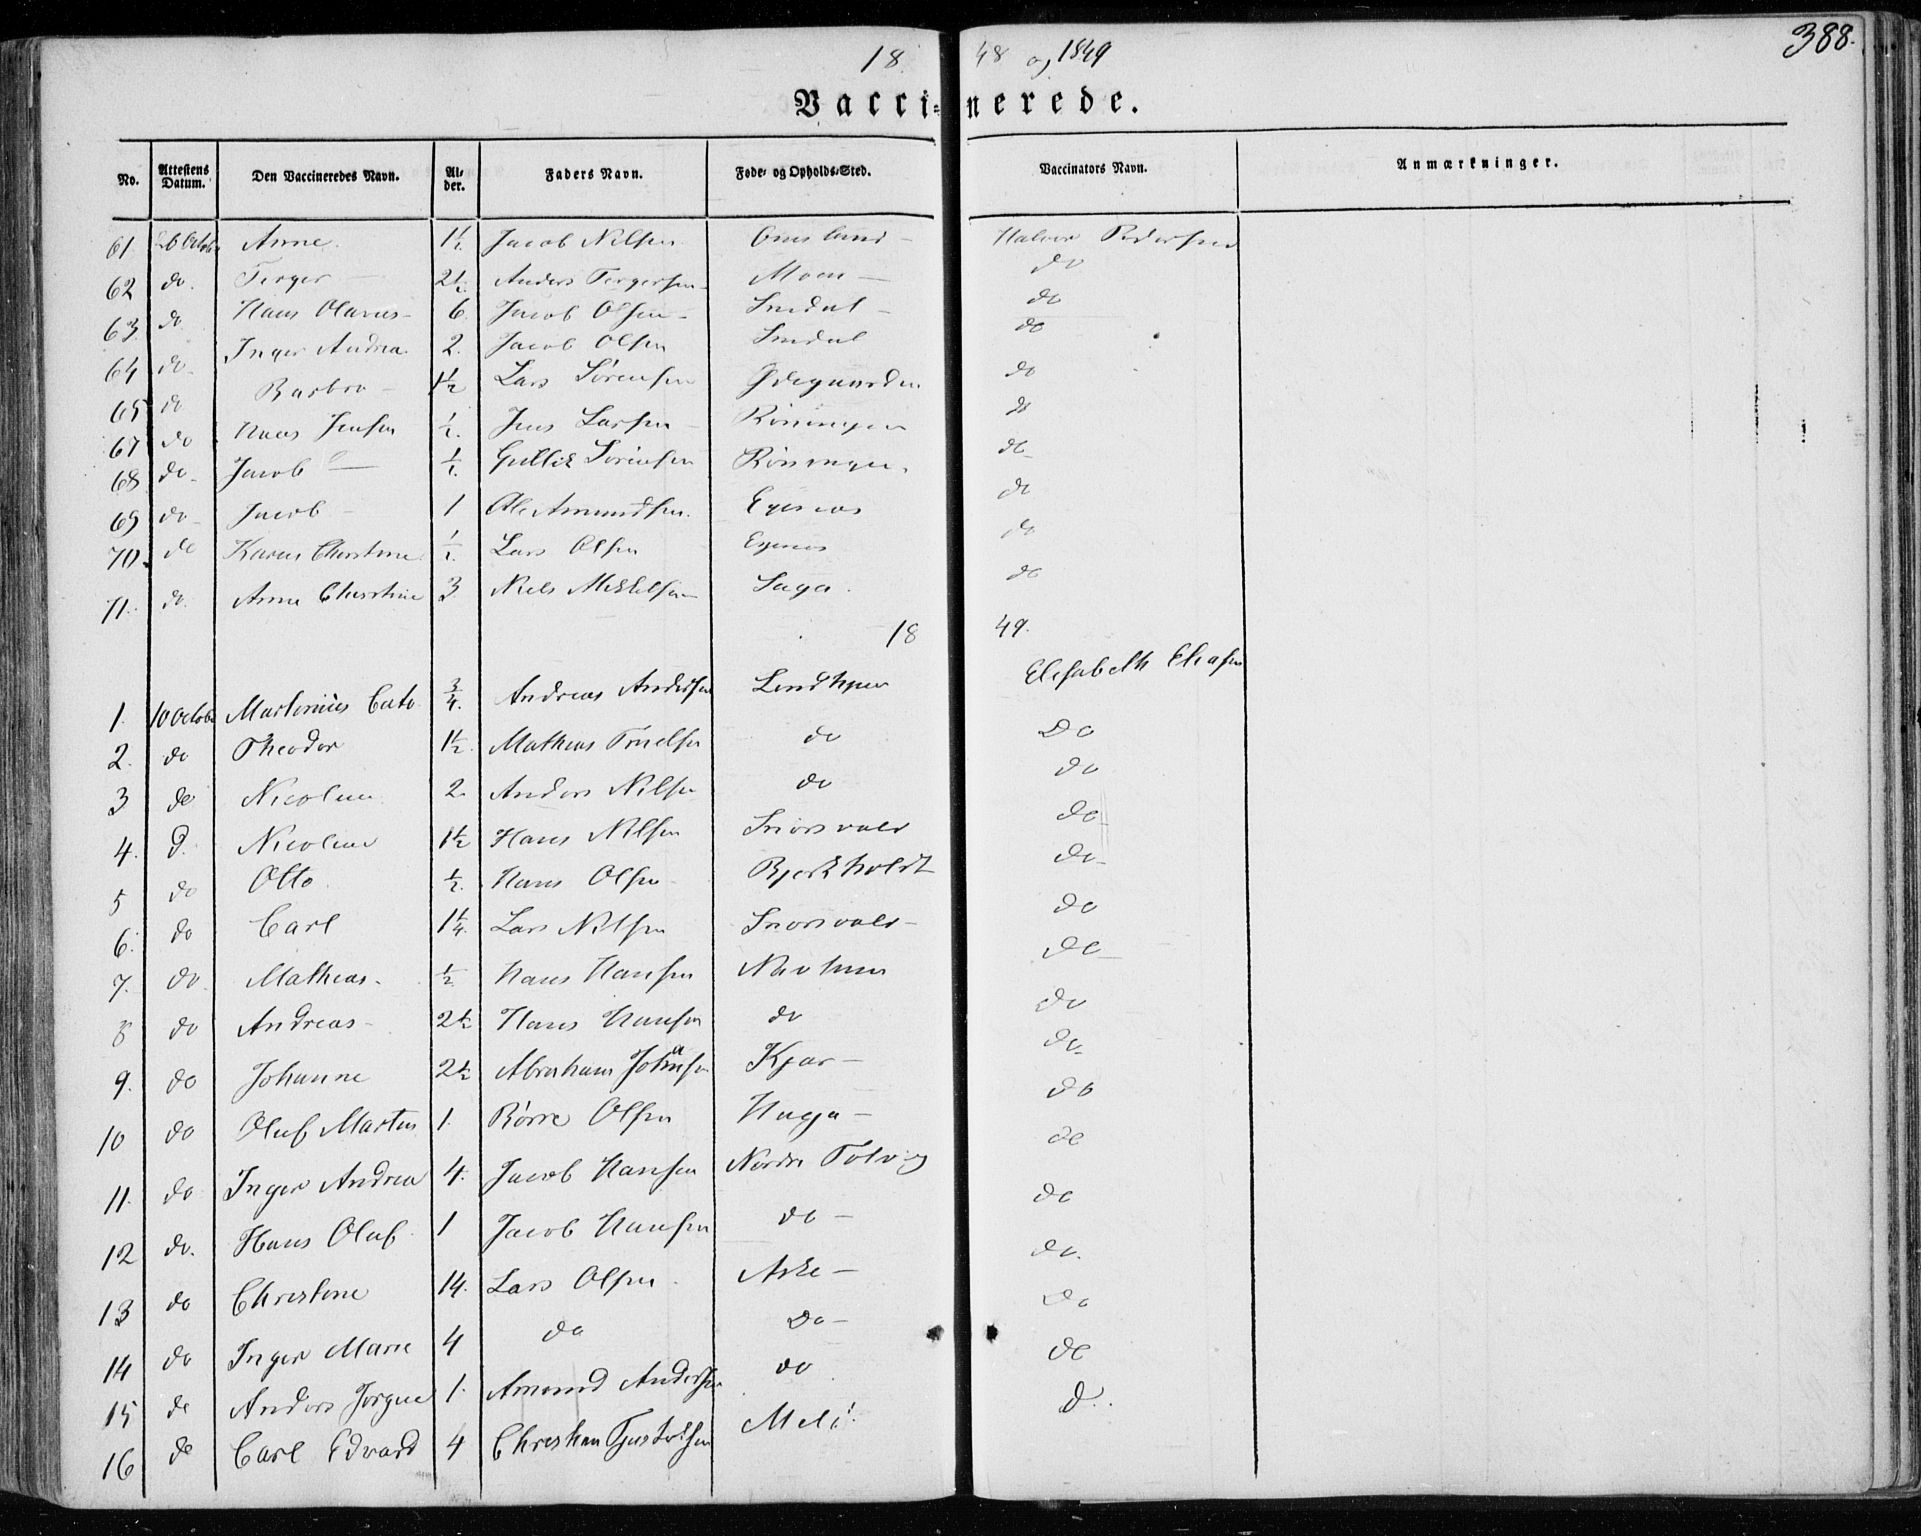 388.
18 48 og 1849
Vacci- nerede.
No. Attestens Datum. Den Vaccineredes Navn. Al- der. Faders Navn. Føde- og Opholds-Sted. Vaccinators Navn. Anmærkninger.
61. 26 Octob Anne 1½ Jacob Nilsen Omsland Halvor Pedersen
62 do. Terger 2½ Anders Tergersen Moen do
63. do Hans Olavus 6. Jacob Olsen do
64 do. Inger Andrea 2. Jacob Olsen do
65 do Barbro 1½ Lars Sörensen Ødegaarden do
67 do Hans Jensen ½. Jens Larsen Röningen do
68 do. Jacob ½ Gullik Sörensen Röningen. do
69 do Jacob 1 Ole Amundsen. do
70. do Karen Christine ½. Lars Olsen do
71. do. Anne Christine 3 Niels Mikkelsen Saga. do
18 49.
1. 10 Octobr Martinius Cato ¾. Andreas Andersen Elisabeth Eliasen
2. do Theodor 1½. Mathias Truelsen do Do
3 do Nicoline 2 Anders Nilsen do do
4. d. Nicoline 1½ Hans Nilsen Snorsvold do
5 do Otto ½. Hans Olsen Bjerkholdt do
6. do Carl 1¼. Lars Nilsen Snorsvold do
7. do. Mathias ½ Hans Hansen do
8 do Andreas 2½ Hans Hansen do do
9. do Johanne 2½ Abraham Johansen Kjær do.
10 do Oluf Martin 1. Börre Olsen Haga do
11. do Inger Andrea 4. Jacob Hansen Nordre Tolvig do
12 do. Hans Oluf 1 Jacob Hansen do do
13 do Christine 14. Lars Olsen Aske do.
14 do Inger Marie 4 do Do Do
15 do Anders Jörgen 1. Amund Andersen do do
16 do Carl Edvard 4 Christian Tjostolsen d.